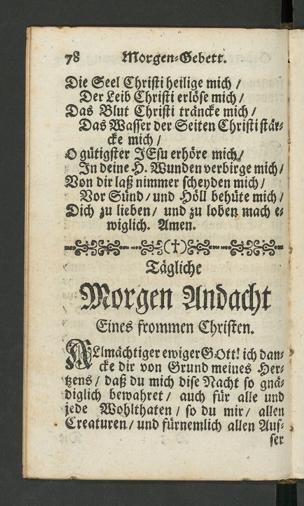 78 Morgen-Gebett.
Die Seel Christi heilige mich /
Der Leib Christi erlöse mich /
Das Blut Christi träncke mich /
Das Wasser der Seiten Christi stär-
cke mich /
O gütigster JEsu erhöre mich /
In deine H. Wunden verbirge mich /
Von dir laß nimmer scheyden mich /
Vor Sünd / und Höll behüte mich /
Dich zu lieben / und zu loben mach e-
wiglich. Amen.
Tägliche
Morgen Andacht
Eines frommen Christen.
ALlmächtiger ewiger GOtt! ich dan-
cke dir von Grund meines Her-
tzens / daß du mich dise Nacht so gnä-
diglich bewahret / auch für alle und
jede Wohlthaten / so du mir / allen
Creaturen / und fürnemlich allen Auf-
ser